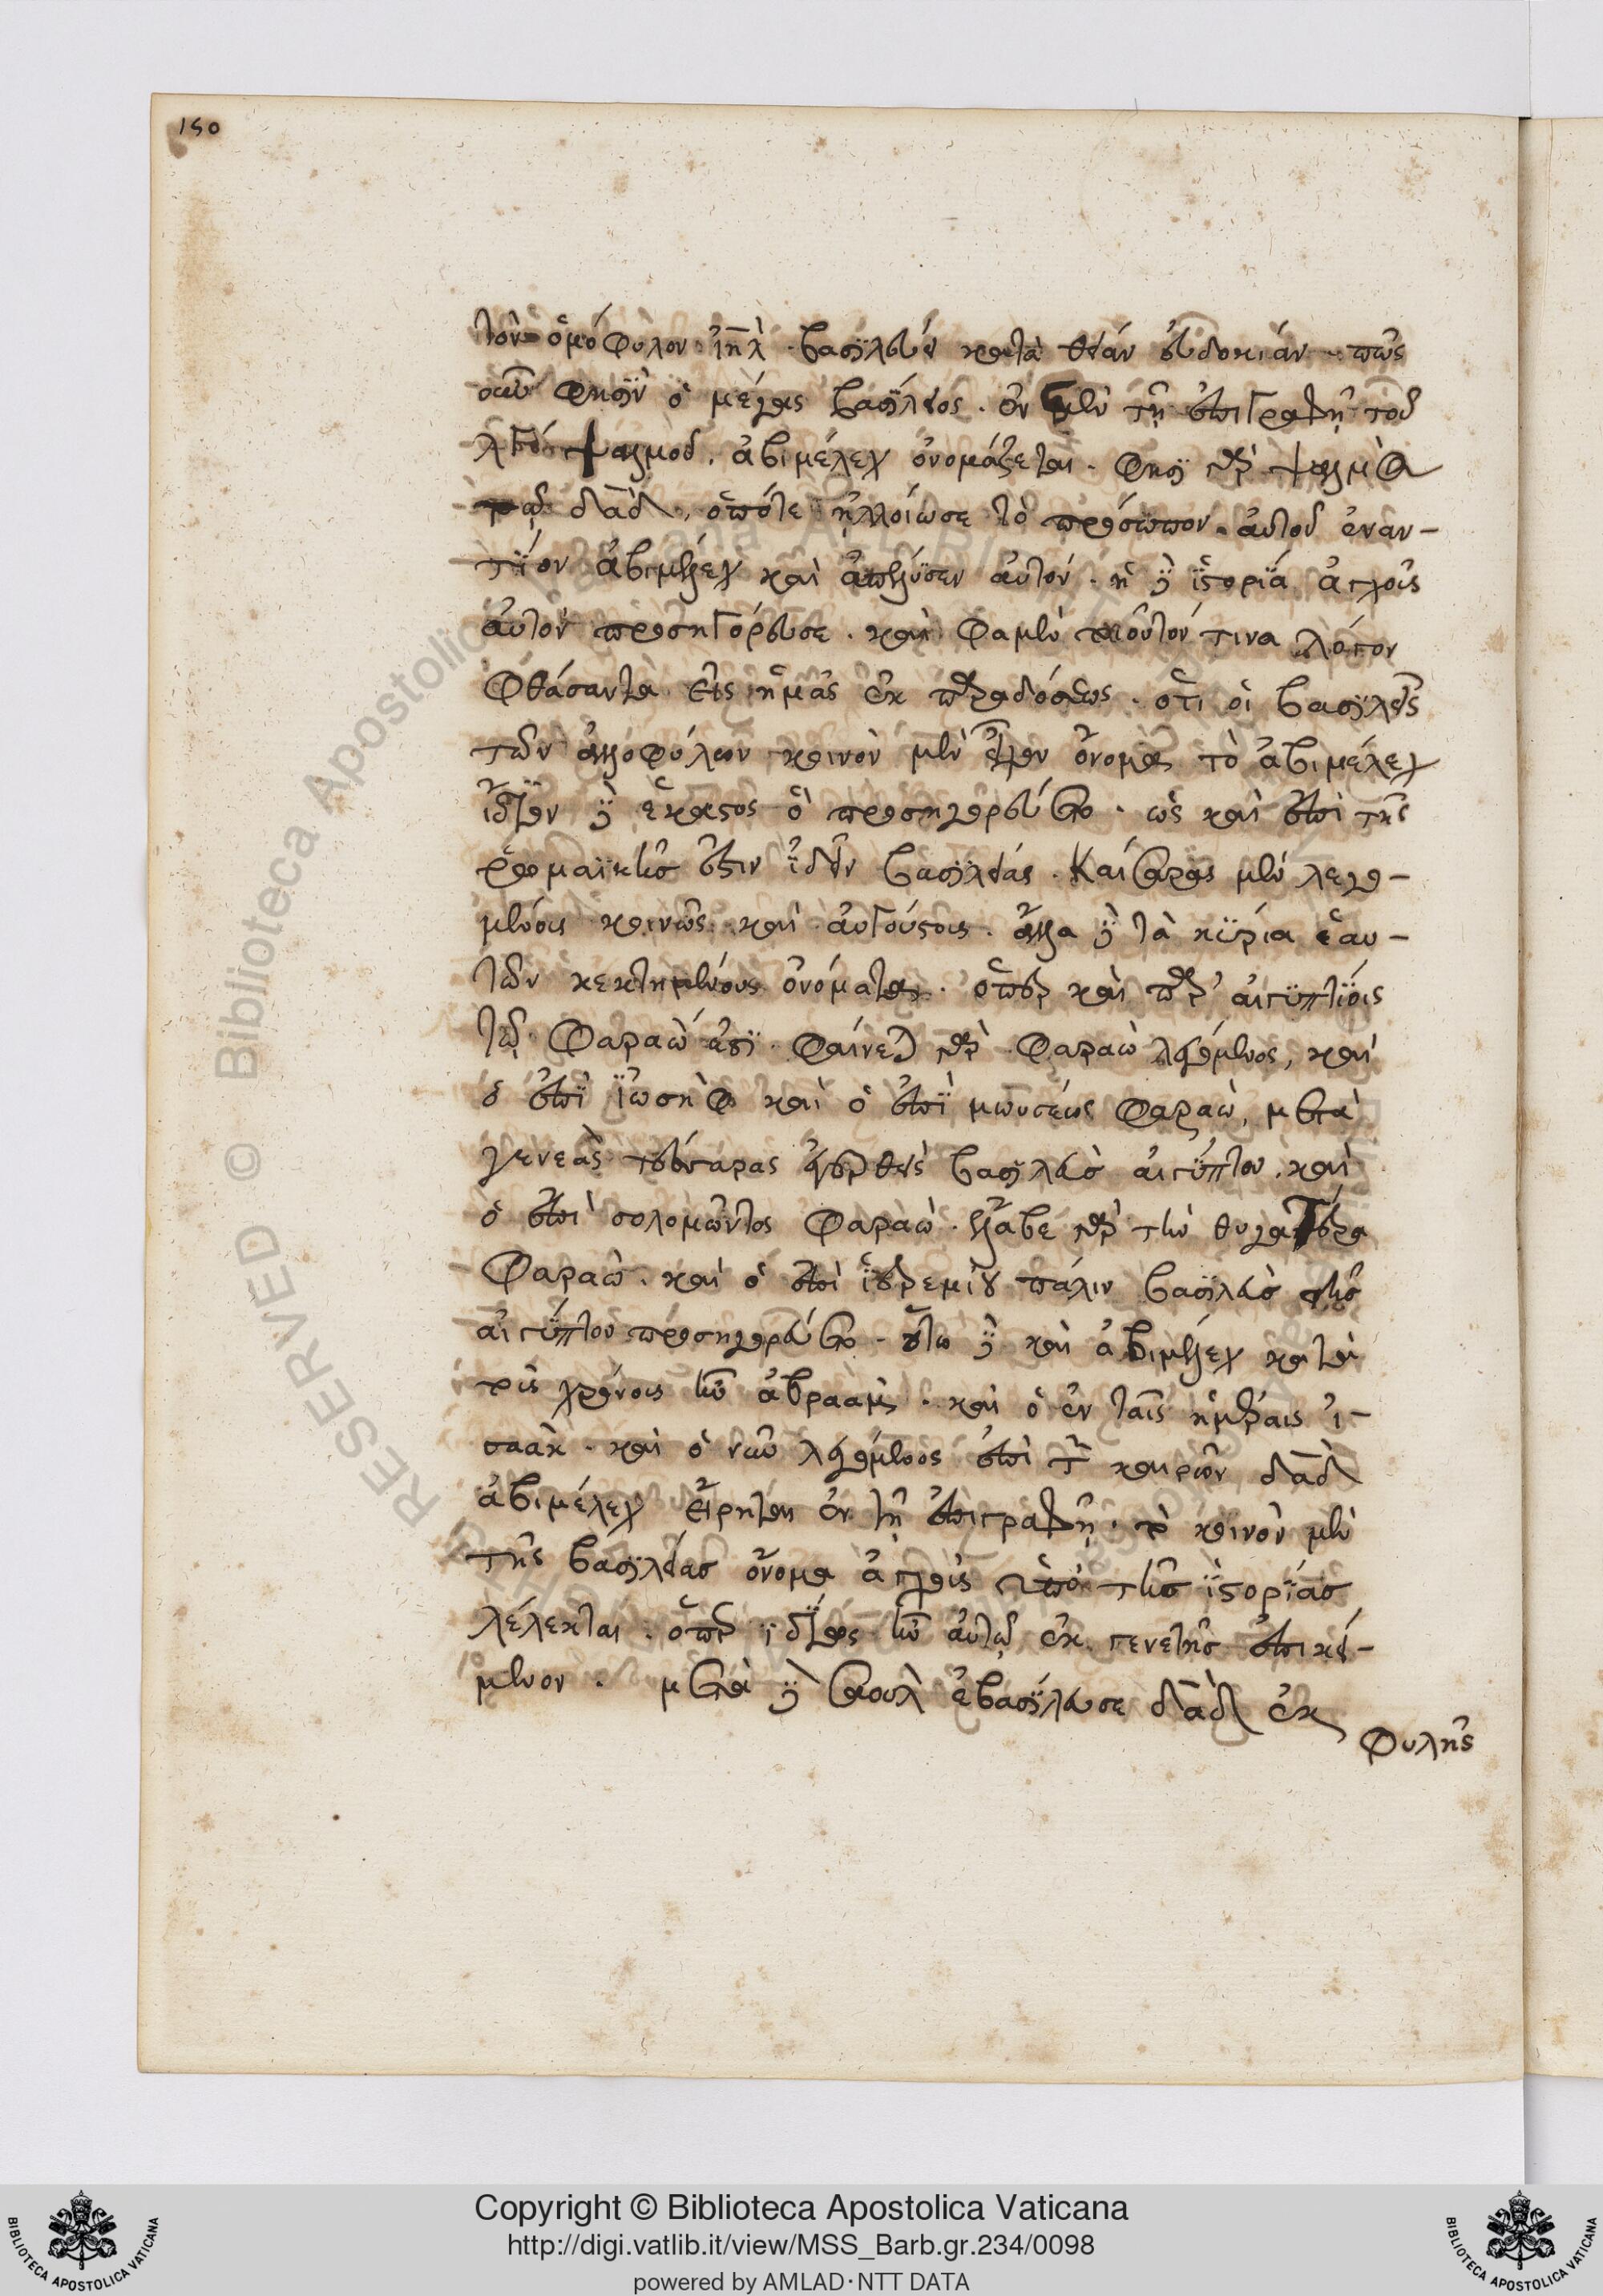 150
τὸν ὁμόφυλον ἰη̅λ. βασϊλεύει κατὰ θείαν εὐδοκίαν. πῶς
οὖν φησὶν ὁ μέγας βασΐλειος. ἐν μὲν τῇ ἐπιγραφῇ τοῦ
ψαλμοῦ. ἀβιμέλεχ ὀνομάζεται. φησὶ γὰρ ψαλμὸς
τῷ δα̅δ, ὁπότε ἠλλοίωσε τὸ πρόσωπον αὐτοῦ ἐναν-
τίον ἀβιμέλεχ καὶ ἀπέλυσεν αὐτόν. ἡ δὲ ἱστορία ἀγχοῦς
αὐτὸν προσηγόρευσε. καὶ φαμὲν τοιοῦτόν τινα λόγον
φθάσαντα εἰς ἡμᾶς ἐκ παραδόσεως. ὅτι οἱ βασιλεῖς
τῶν ἀλλοφύλων κοινὸν μὲν εἶχον ὄνομα τὸ ἀβιμέλεχ
ἴδιον δὲ ἕκαστος ὃ προσηγορεύετο. ὡς καὶ ἐπὶ τῆς
ῥωμαϊκῆς ἔστιν ἰδεῖν βασιλείας. Καίσαρας μὲν λεγο-
μένους κοινῶς καὶ αὐγούστους. ἄλλα δὲ τὰ κύρια ἑαυ-
τῶν κεκτημένους ὀνόματα. ὅπερ καὶ παρ' αἰγυπτίοις
τῷ φαραώ ἐστι. φαίνεται γὰρ φαραὼ λεγόμενος, καὶ
ὁ ἐπὶ ἰωσὴφ καὶ ὁ ἐπὶ μωυσέως φαραώ, μετὰ
γενεὰς τέσσαρας ἀγερθεὶς βασιλεὺς αἰγύπτου. καὶ
ὁ ἐπὶ σολομῶντος φαραώ. ἔλαβε γὰρ τὴν θυγατέρα
φαραώ. καὶ ὁ ἐπὶ ἱερεμίου πάλιν βασιλεὺς τῆς
αἰγύπτου προσηγορεύετο. οὕτω δὲ καὶ ἀβιμέλεχ κατὰ
τοὺς χρόνους ἦν ἀβραάμ. καὶ ὁ ἐν ταῖς ἡμέραις ἰ-
σαάκ. καὶ ὁ νῦν λεγόμενος ἐπὶ τῶν καιρῶν δα̅δ
ἀβιμέλεχ εἴρηται ἐν τῇ ἐπιγραφῇ. τὸ κοινὸν μὲν
τῆς βασιλείας ὄνομα ἀγχοῦς ὑπὸ τῆς ἱστορίας
λέλεκται. ὅπερ ἰδίως ἦν αὐτῷ ἐκ γενετῆς ἐπικεί-
μενον. μετὰ δὲ σαοὺλ ἐβασίλευσε δα̅δ ἐκ
φυλῆς
Copyright © Biblioteca Apostolica Vaticana
http://digi.vatlib.it/view/MSS_Barb.gr.234/0098
powered by AMLAD·NTT DATA